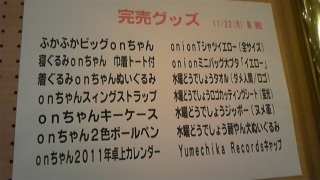 完売グッズ
11/22(月)
ふかふかビッグonちゃん
寝ぐるみonちゃん 巾着トート付
着ぐるみonちゃんぬいぐるみ
onちゃんスイングストラップ
onちゃんキーケース
onちゃん2色ボールペン
onちゃん2011年卓上カレンダー
onionTシャツイエロー(全サイズ)
onionミニバッグ大ブタ「イエロー」
水曜どうでしょうタオル(ダメ人間/ロゴ)
水曜どうでしょうロゴカッティングシート(蛍光)
水曜どうでしょうジッポー(ヌメ革)
水曜どうでしょう顔やん犬ぬいぐるみ
Yumechika Recordsキャップ